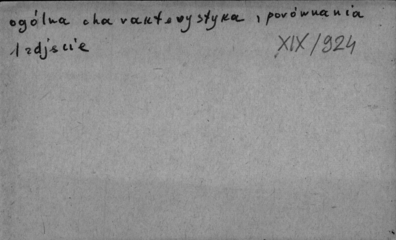 ogólna charakterystyka, porównania
1 zdjęcie XIX/924